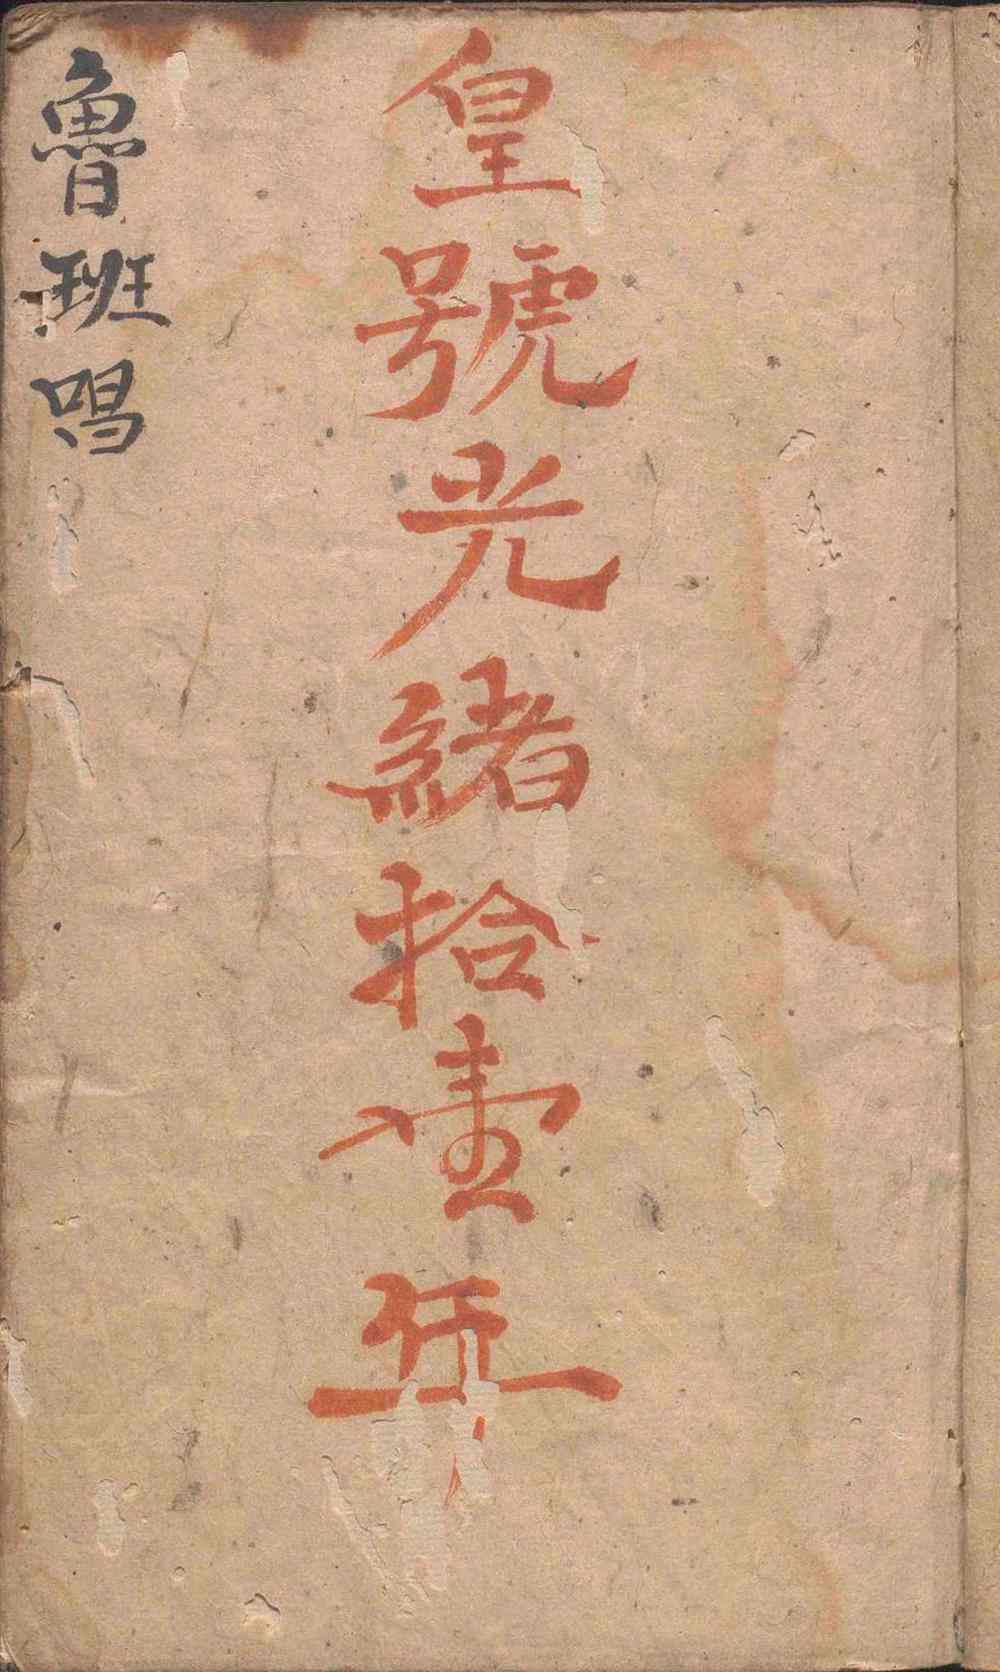 皇號光緒拾壹年
魯班唱